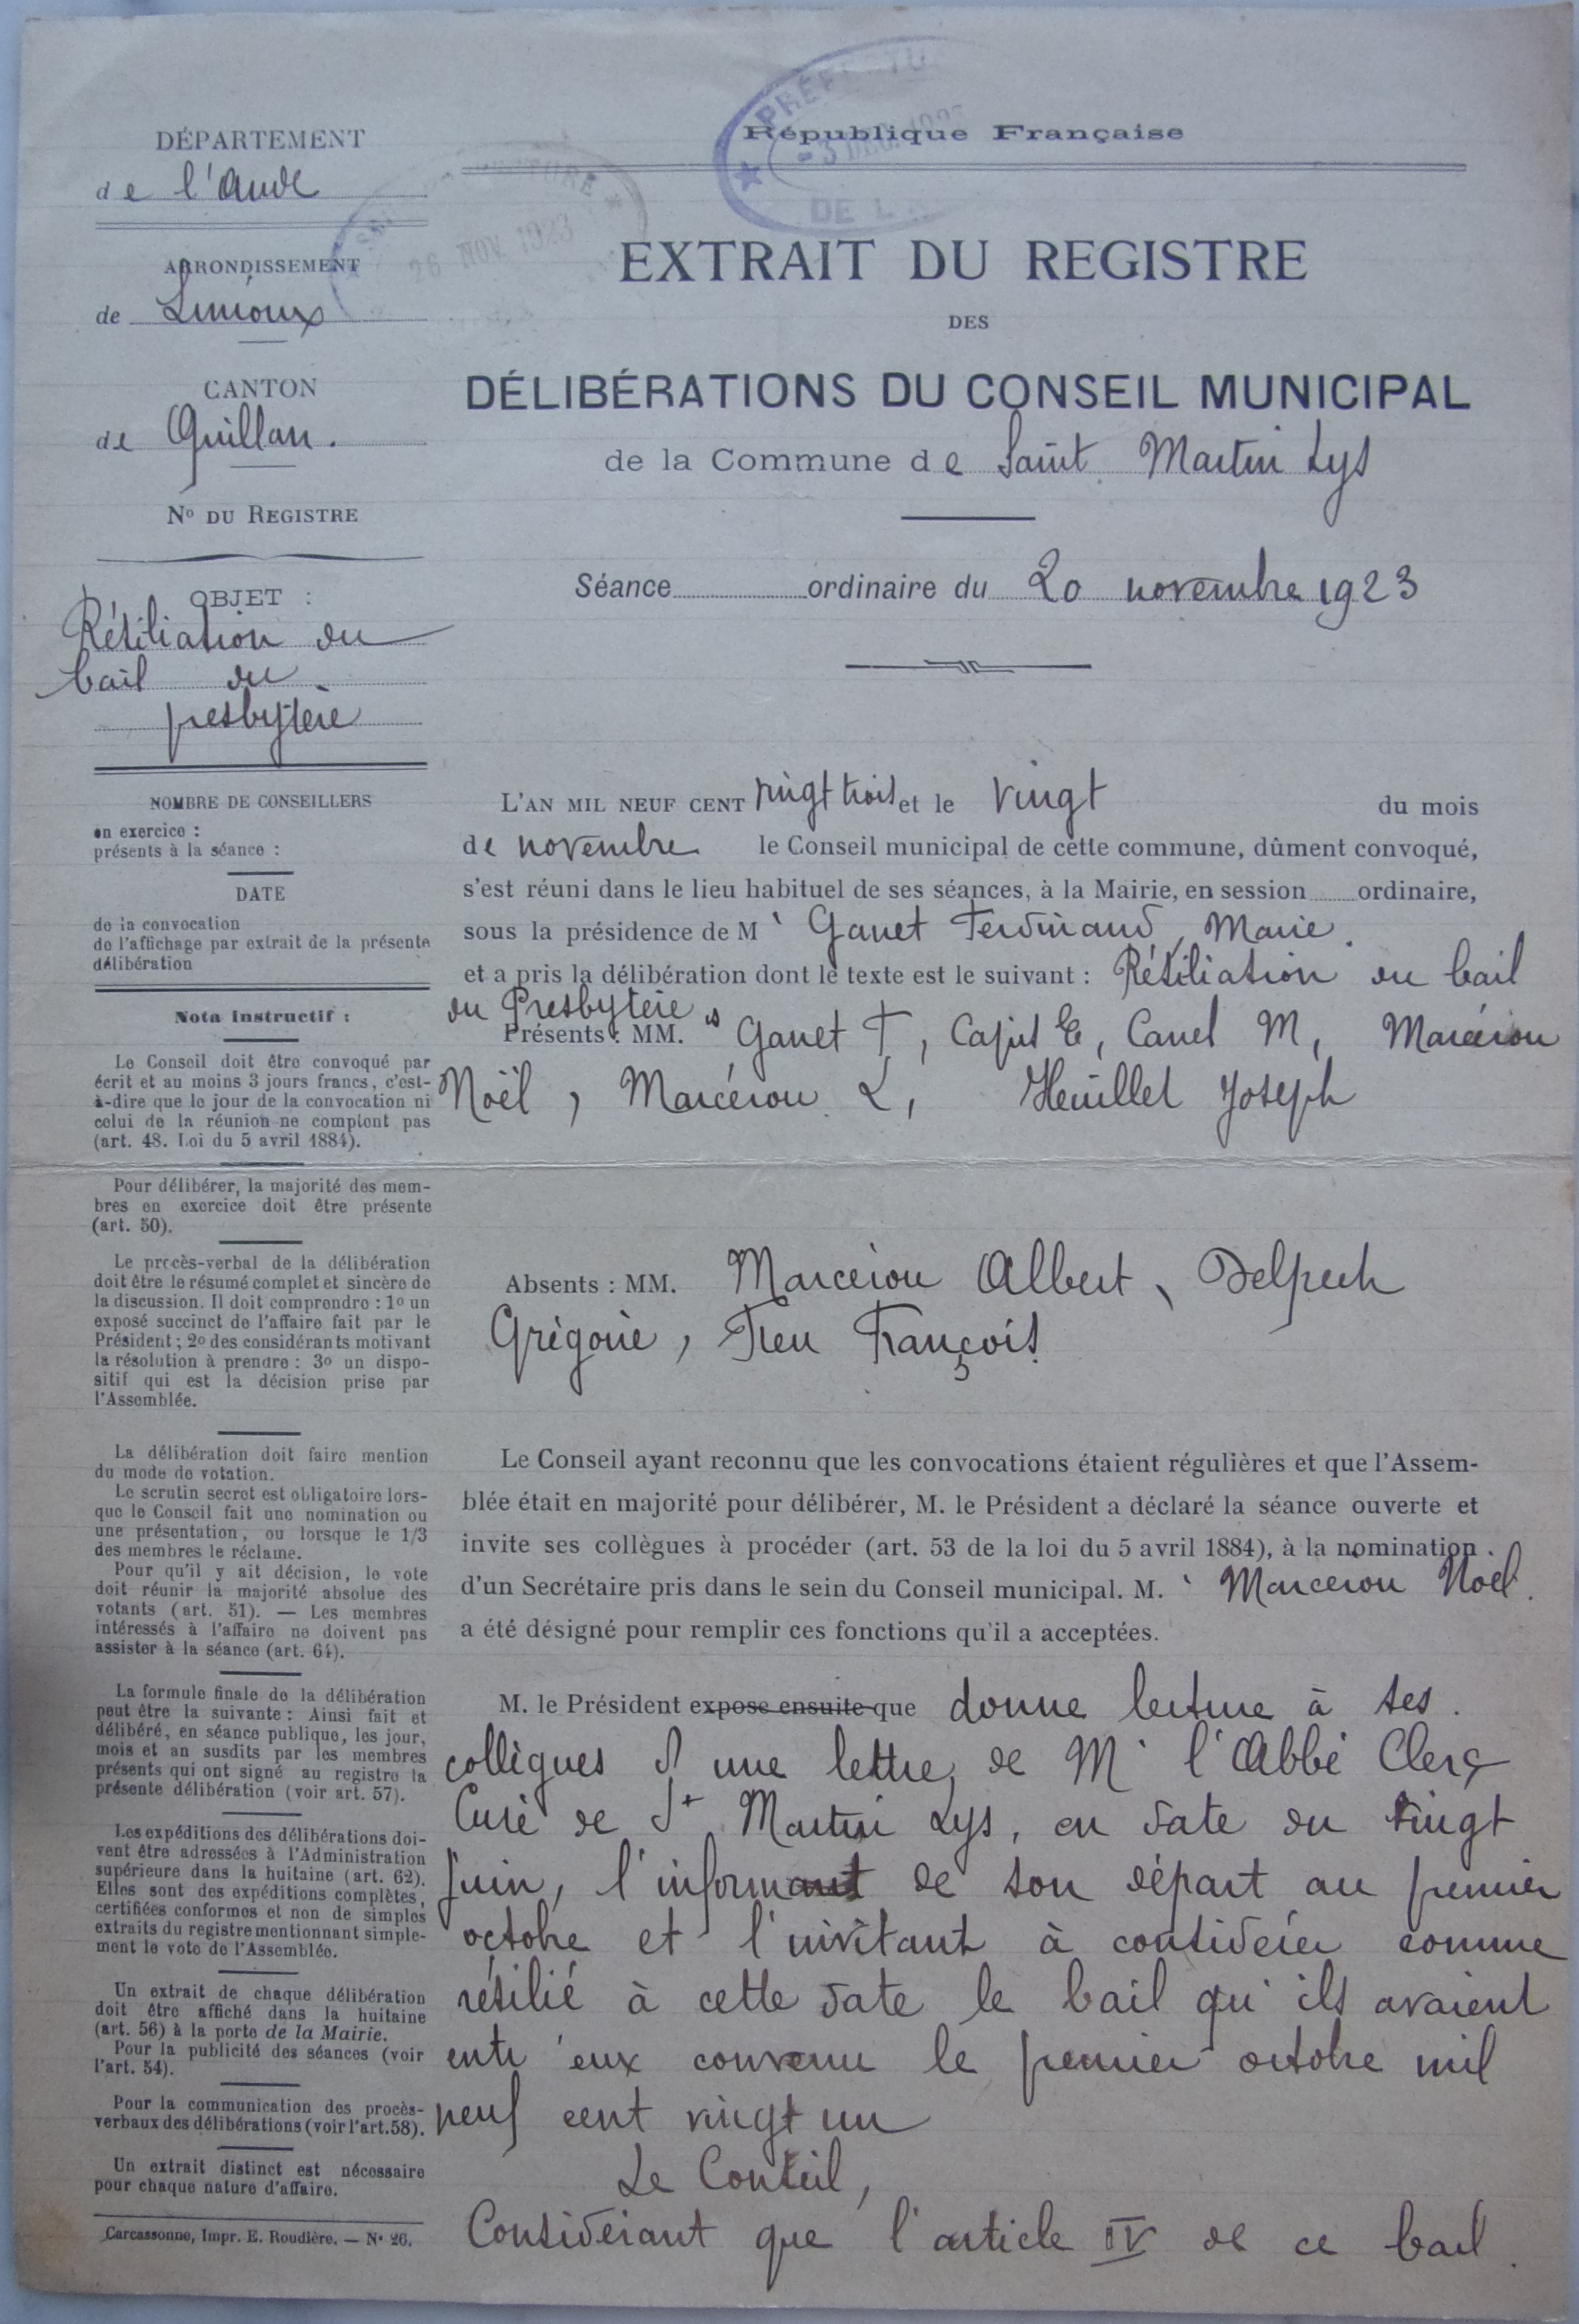 DÉPARTEMENT
de l'Aude
ARRONDISSEMENT
de Limoux
CANTON
de Quillan.
Nº DU REGISTRE
OBJET :
Résiliation du
bail du
presbytère
NOMBRE DE CONSEILLERS
en exercice :
présents à la séance :
DATE
de la convocation
de l'affichage par extrait de la présente
délibération
Nota instructif :
Le Conseil doit être convoqué par
écrit et au moins 3 jours francs, c'est-
à-dire que le jour de la convocation ni
celui de la réunion ne comptent pas
(art. 48. Loi du 5 avril 1884).
Pour délibérer, la majorité des mem-
bres en exercice doit être présente
(art. 50).
Le procès-verbal de la délibération
doit être le résumé complet et sincère de
la discussion. Il doit comprendre : 1º un
exposé succinct de l'affaire fait par le
Président ; 2º des considérants motivant
la résolution à prendre : 3º un dispo-
sitif qui est la décision prise par
l'Assemblée.
La délibération doit faire mention
du mode de votation.
Le scrutin secret est obligatoire lors-
que le Conseil fait une nomination ou
une présentation, ou lorsque le 1/3
des membres le réclame.
Pour qu'il y ait décision, le vote
doit réunir la majorité absolue des
votants (art. 51). — Les membres
intéressés à l'affaire ne doivent pas
assister à la séance (art. 64).
La formule finale de la délibération
peut être la suivante : Ainsi fait et
délibéré, en séance publique, les jour,
mois et an susdits par les membres
présents qui ont signé au registre la
présente délibération (voir art. 57).
Les expéditions des délibérations doi-
vent être adressées à l'Administration
supérieure dans la huitaine (art. 62).
Elles sont des expéditions complètes,
certifiées conformes et non de simples
extraits du registre mentionnant simple-
ment le vote de l'Assemblée.
Un extrait de chaque délibération
doit être affiché dans la huitaine
(art. 56) à la porte de la Mairie.
Pour la publicité des séances (voir
l'art. 54).
Pour la communication des procès-
verbaux des délibérations (voir l'art. 58).
Un extrait distinct est nécessaire
pour chaque nature d'affaire.
Carcassonne, Impr. E. Roudière. — Nº 26.
PRÉFECTU
- 3 DEC. 192
DE L'
26 NOV. 1923
République Française
EXTRAIT DU REGISTRE
DES
DÉLIBÉRATIONS DU CONSEIL MUNICIPAL
de la Commune de Saint Martin Lys
Séance ordinaire du 20 novembre 1923
L'AN MIL NEUF CENT vingt trois et le vingt du mois
de novembre le Conseil municipal de cette commune, dûment convoqué,
s'est réuni dans le lieu habituel de ses séances, à la Mairie, en session ordinaire,
sous la présidence de Mr Ganet Ferdinand, Maire.
et a pris la délibération dont le texte est le suivant : Résiliation du bail
du Presbytère
Présents : MM. rs Ganet F, Canel M, Marcérou
Noël, Marcérou L, Heuillet Joseph
Absents : MM. Marcérou Albert, Delpech
Grégoire, François.
Le Conseil ayant reconnu que les convocations étaient régulières et que l'Assem-
blée était en majorité pour délibérer, M. le Président a déclaré la séance ouverte et
invite ses collègues à procéder (art. 53 de la loi du 5 avril 1884), à la nomination
d'un Secrétaire pris dans le sein du Conseil municipal. M. r Marcerou Noël.
a été désigné pour remplir ces fonctions qu'il a acceptées.
M. le Président expose ensuite que donne lecture à ses
collègues d'une lettre, de Mr l'Abbé Clerc
Curé de St Martin Lys, en date du vingt
juin, l'informant de son départ au premier
octobre et l'invitant à considérer comme
résilié à cette date le bail qu'ils avaient
entr'eux convenu le premier octobre mil
neuf cent vingt un
Le Conseil,
Considérant que l'article IV de ce bail